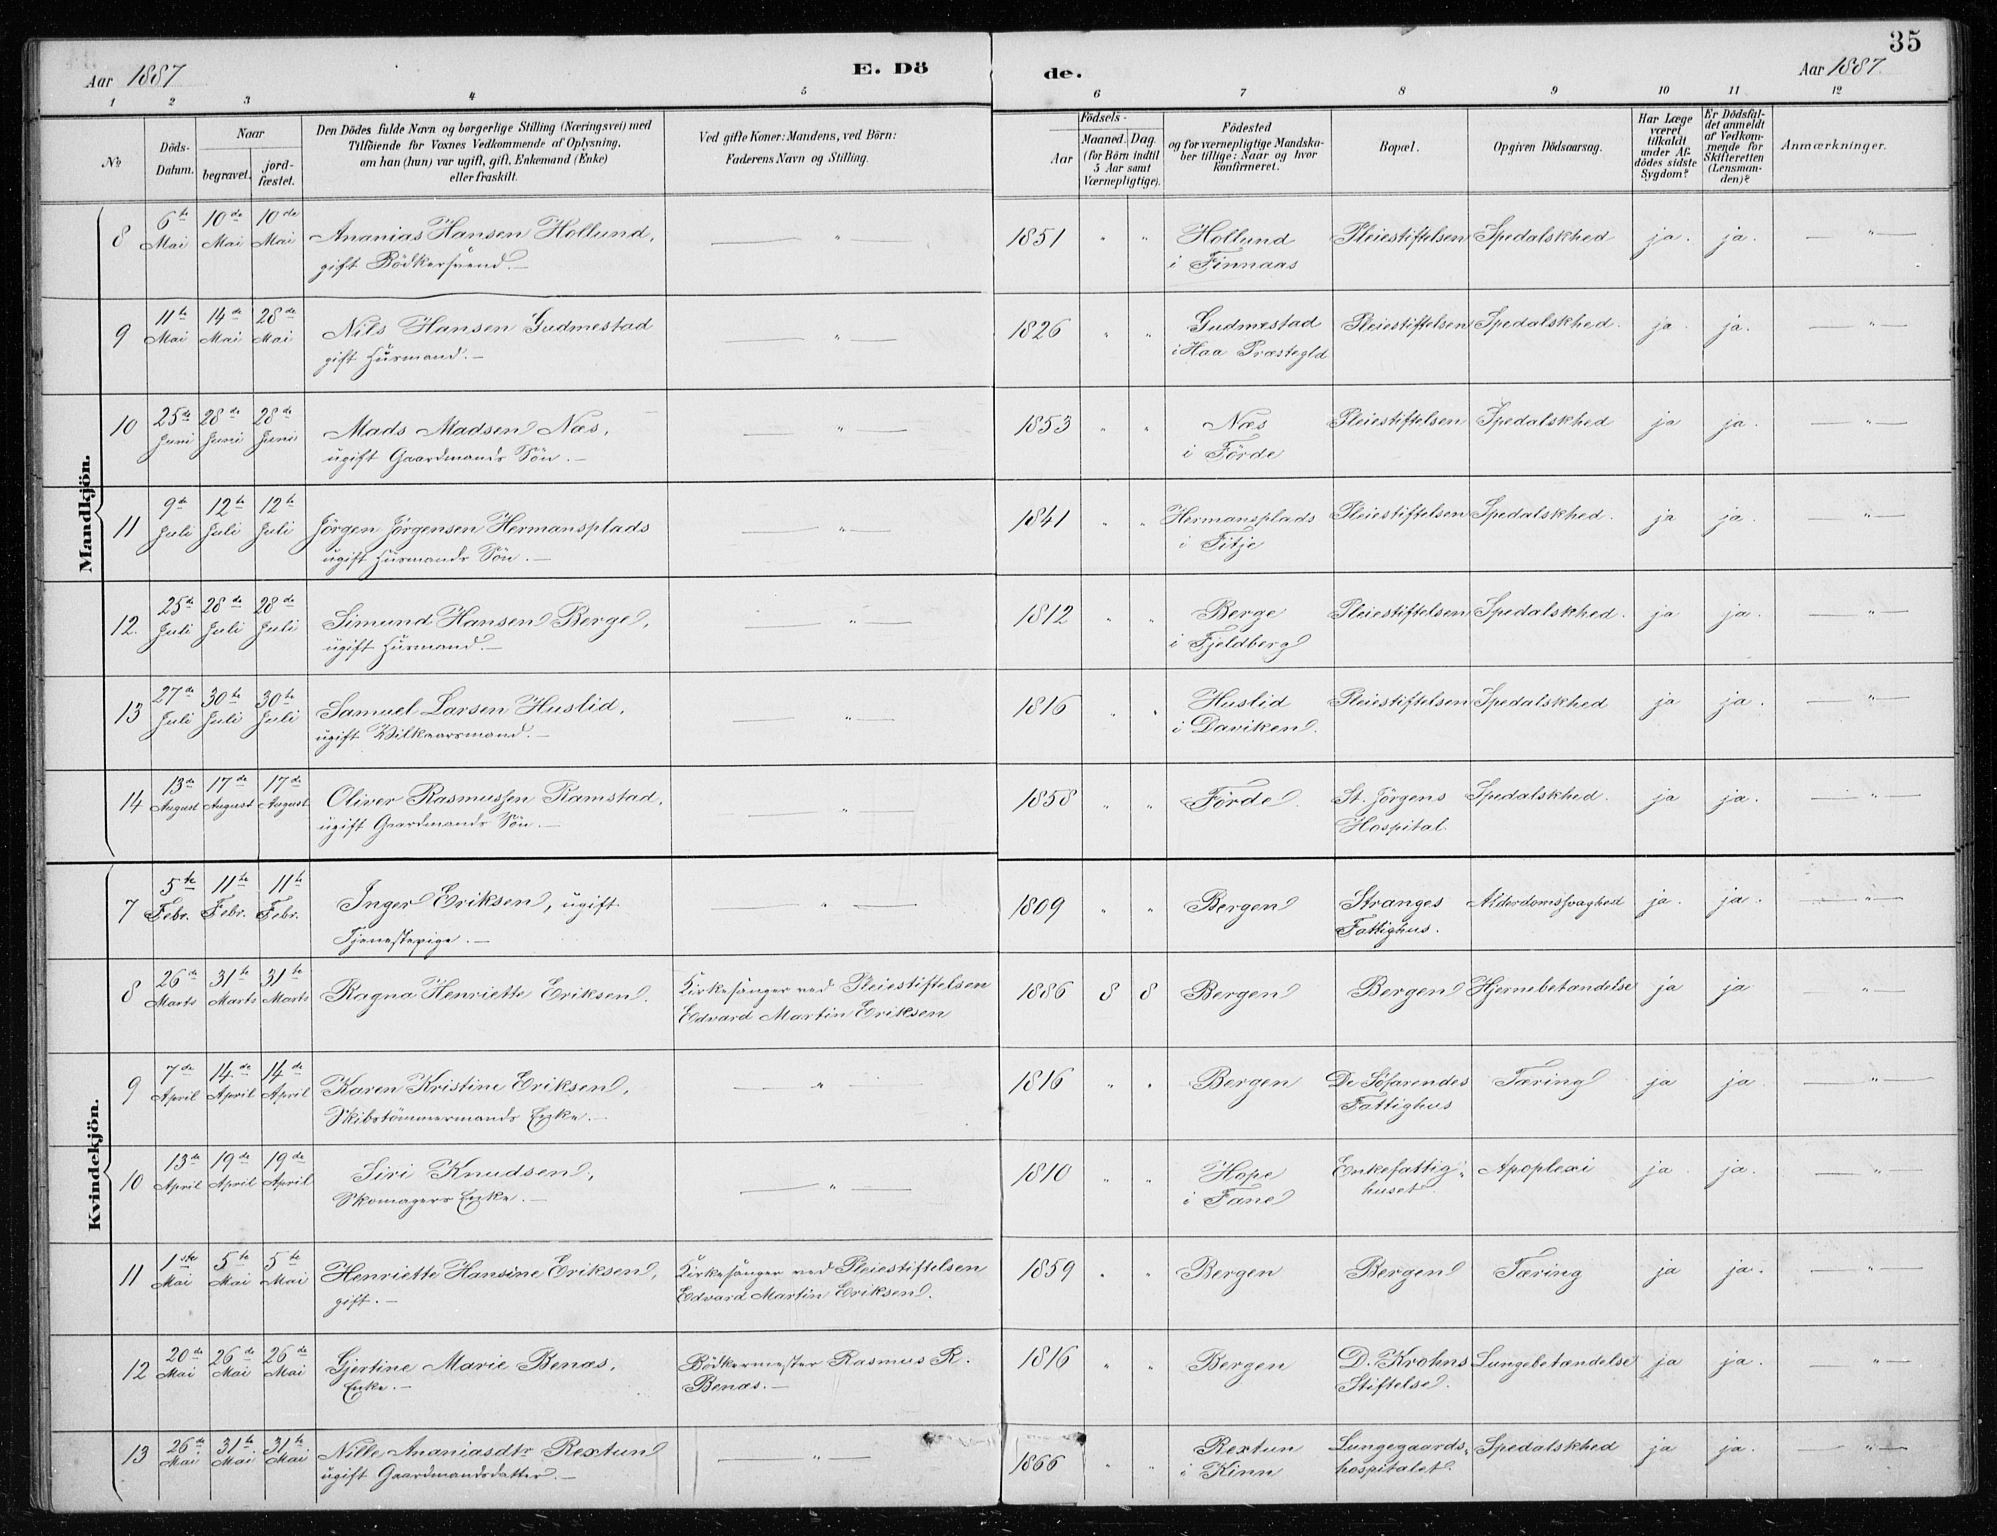 35
Aar 1887 E. Dö de. Aar 1887.
1 2 3 4 5 6 7 8 9 10 11 12
№
Döds-Datum.
Naar
begravet.
jord-fæstet.
Den Dödes fulde Navn og borgerlige Stilling (Næringsvei) med
Tilföiende for Voxnes Vedkommende af Oplysning,
om han (hun) var ugift, gift, Enkemand (Enke)
eller fraskilt.
Ved gifte Koner: Mandens, ved Börn:
Faderens Navn og Stilling.
Födsels-
Aar
Maaned. Dag.
(for Börn indtil
5 Aar samt
Værnepligtige).
Födested
og for værnepligtige Mandska-
ber tillige: Naar og hvor
konfirmeret.
Bopæl.
Opgiven Dödsaarsag.
Har Læge
været
tilkaldt
under Af-
dödes sidste
Sygdom?
Er Dödsfal-
det anmeldt
af Vedkom-
mende for
Skifteretten
(Lensman-
den)?
Anmærkninger.
Mandkjön.
8 6te Mai 10de Mai 10de Mai Ananias Hansen Hollund, — " 1851 " " Hollund Pleiestiftelsen Spedalskhed ja. ja. — " —
gift Bödkersvend. — i Finnaas
9 11te Mai 14de Mai 28de Mai Nils Hansen Gudmestad — " — 1826 " " Gudmestad Pleiestiftelsen Spedalskhed. ja. ja. — " —
gift Husmand. — i Haa Præstegld
10 25de Juni 28de Juni 28de Juni Mads Madsen Næs, — " — 1853 " " Næs Pleiestiftelsen Spedalskhed ja ja. — " —
ugift Gaardmands Sön. — i Förde
11 9de Juli 12te Juli 12te Juli Jörgen Jörgensen Hermansplads — " — 1841 " " Hermansplads Pleiestiftelsen Spedalskhed. ja ja. — " —
ugift Husmands Sön. — i Fitje
12. 25de Juli 28de Juli 28de Juli Simund Hansen Berge, — " — 1812 " " Berge Pleiestiftelsen Spedalskhed. ja ja. — " —
ugift Husmand. — i Fjeldberg
13 27de Juli 30te Juli 30te Juli Samuel Larsen Huslid, — " 1816 " " Huslid Pleiestiftelsen Spedalskhed ja ja. — " —
ugift Vilkaarsmand. — i Daviken.
14 13de August 17de August 17de August Oliver Rasmussen Ramstad, — " 1858 " " Förde St. Jörgens Spedalskhed. ja ja. — " —
ugift Gaardmands Sön. — Hospital.
Kvindekjön.
7 5te Febr. 11te Febr. 11te Febr. Inger Eriksen, ugift — " — 1809 " " Bergen Stranges Alderdomssvaghed ja. ja. — " —
Tjenestepige. — Fattighus.
8 26de Marts 31te Marts 31te Marts Ragna Henriette Eriksen. Kirkesanger ved Pleiestiftelsen 1886 8 8 Bergen Bergen Hjernebetændelse ja ja — " —
Edvard Martin Eriksen
9 7de April 14de April 14de April Karen Kristine Eriksen, — " 1816 " " Bergen De Söfarendes Tæring ja ja. — " —
Skibstömmermands Enke. — Fattighus
10 13de April 19de April 19de April Siri Knudsen, — " — 1810 " " Hope Enkefattig- Apoplexi ja ja. — "
Skomagers Enke. — i Fane huset.
11 1ste Mai 5te Mai 5te Mai Henriette Hansine Eriksen, Kirkesanger ved Pleiestiftelsen 1859 " " Bergen Bergen Tæring ja ja. — " —
gift. — Edvard Martin Eriksen.
12 20de Mai 26de Mai 26de Mai Gjertine Marie Benæs, Bödkermester Rasmus R. 1816 " " Bergen D. Krohns Lungebetændelse ja ja. — " —
Enke. — Benæs. — Stiftelse.
13 26de Mai 31te Mai 31te Mai Nille Ananiasdtr Rextun — " — 1866 " " Rextun Lungegaards- Spedalskhed ja ja. — " —
ugift Gaardmandsdatter. — i Kinn hospitalet.